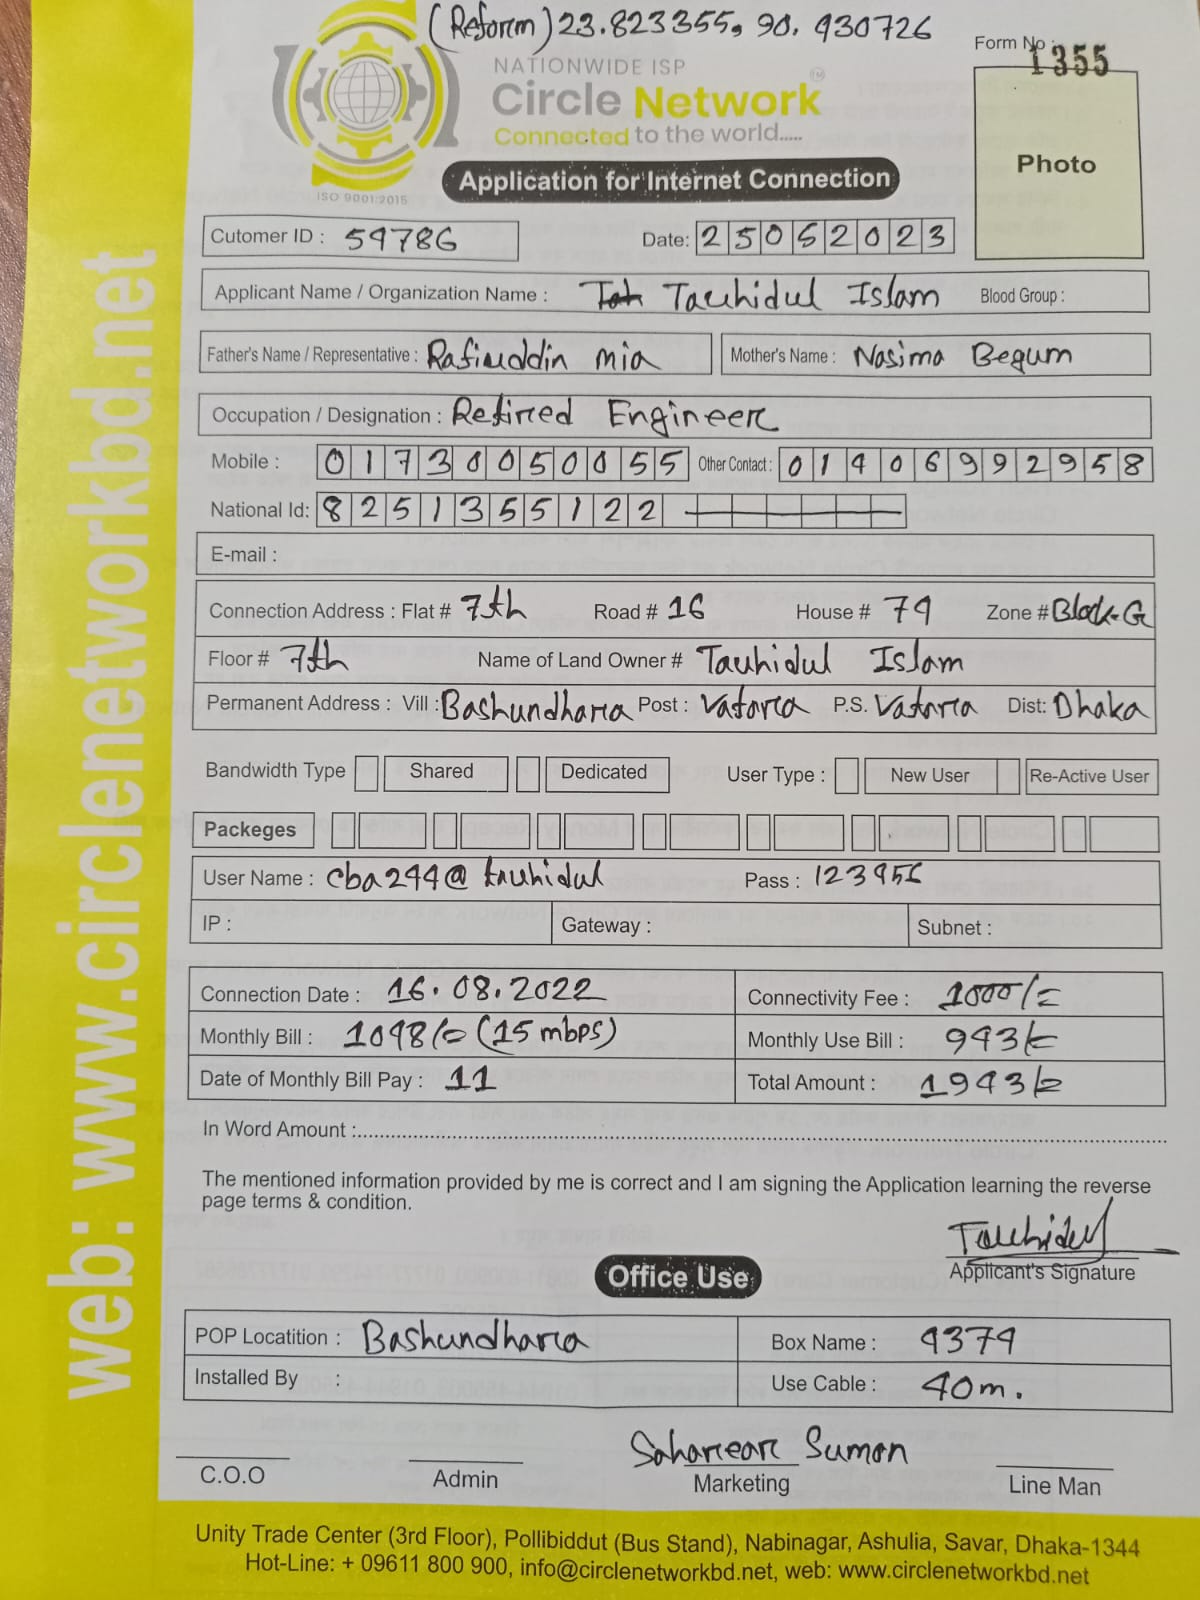 (Reform) 23.823355, 90.430726
Form No : 1355
NATIONWIDE ISP
Circle Network TM
Connected to the world.....
ISO 9001:2015
Photo
Application for Internet Connection
Cutomer ID : 54786 Date: 25052023
Applicant Name / Organization Name : Tauhidul Islam Blood Group :
Father's Name / Representative : Rafiuddin mia Mother's Name : Nasima Begum
Occupation / Designation : Retired Engineer
Mobile : 01730050055 Other Contact : 01406992958
National Id: 8251355122
E-mail :
Connection Address : Flat # 7th Road # 16 House # 74 Zone # Block-G
Floor # 7th Name of Land Owner # Tauhidul Islam
Permanent Address : Vill : Bashundhara Post : Vatara P.S. Vatara Dist: Dhaka
Bandwidth Type Shared Dedicated User Type : New User Re-Active User
Packeges
User Name : cba244@tauhidul Pass : 123456
IP : Gateway : Subnet :
Connection Date : 16.08.2022 Connectivity Fee : 1000/=
Monthly Bill : 1048/= (15 mbps) Monthly Use Bill : 943/=
Date of Monthly Bill Pay : 11 Total Amount : 1943/=
In Word Amount :
The mentioned information provided by me is correct and I am signing the Application learning the reverse
page terms & condition.
Tauhidul
Applicant's Signature
Office Use
POP Locatition : Bashundhara Box Name : 4374
Installed By : Use Cable : 40m.
Saharear Sumon
C.O.O Admin Marketing Line Man
Unity Trade Center (3rd Floor), Pollibiddut (Bus Stand), Nabinagar, Ashulia, Savar, Dhaka-1344
Hot-Line: + 09611 800 900, info@circlenetworkbd.net, web: www.circlenetworkbd.net
web: www.circlenetworkbd.net